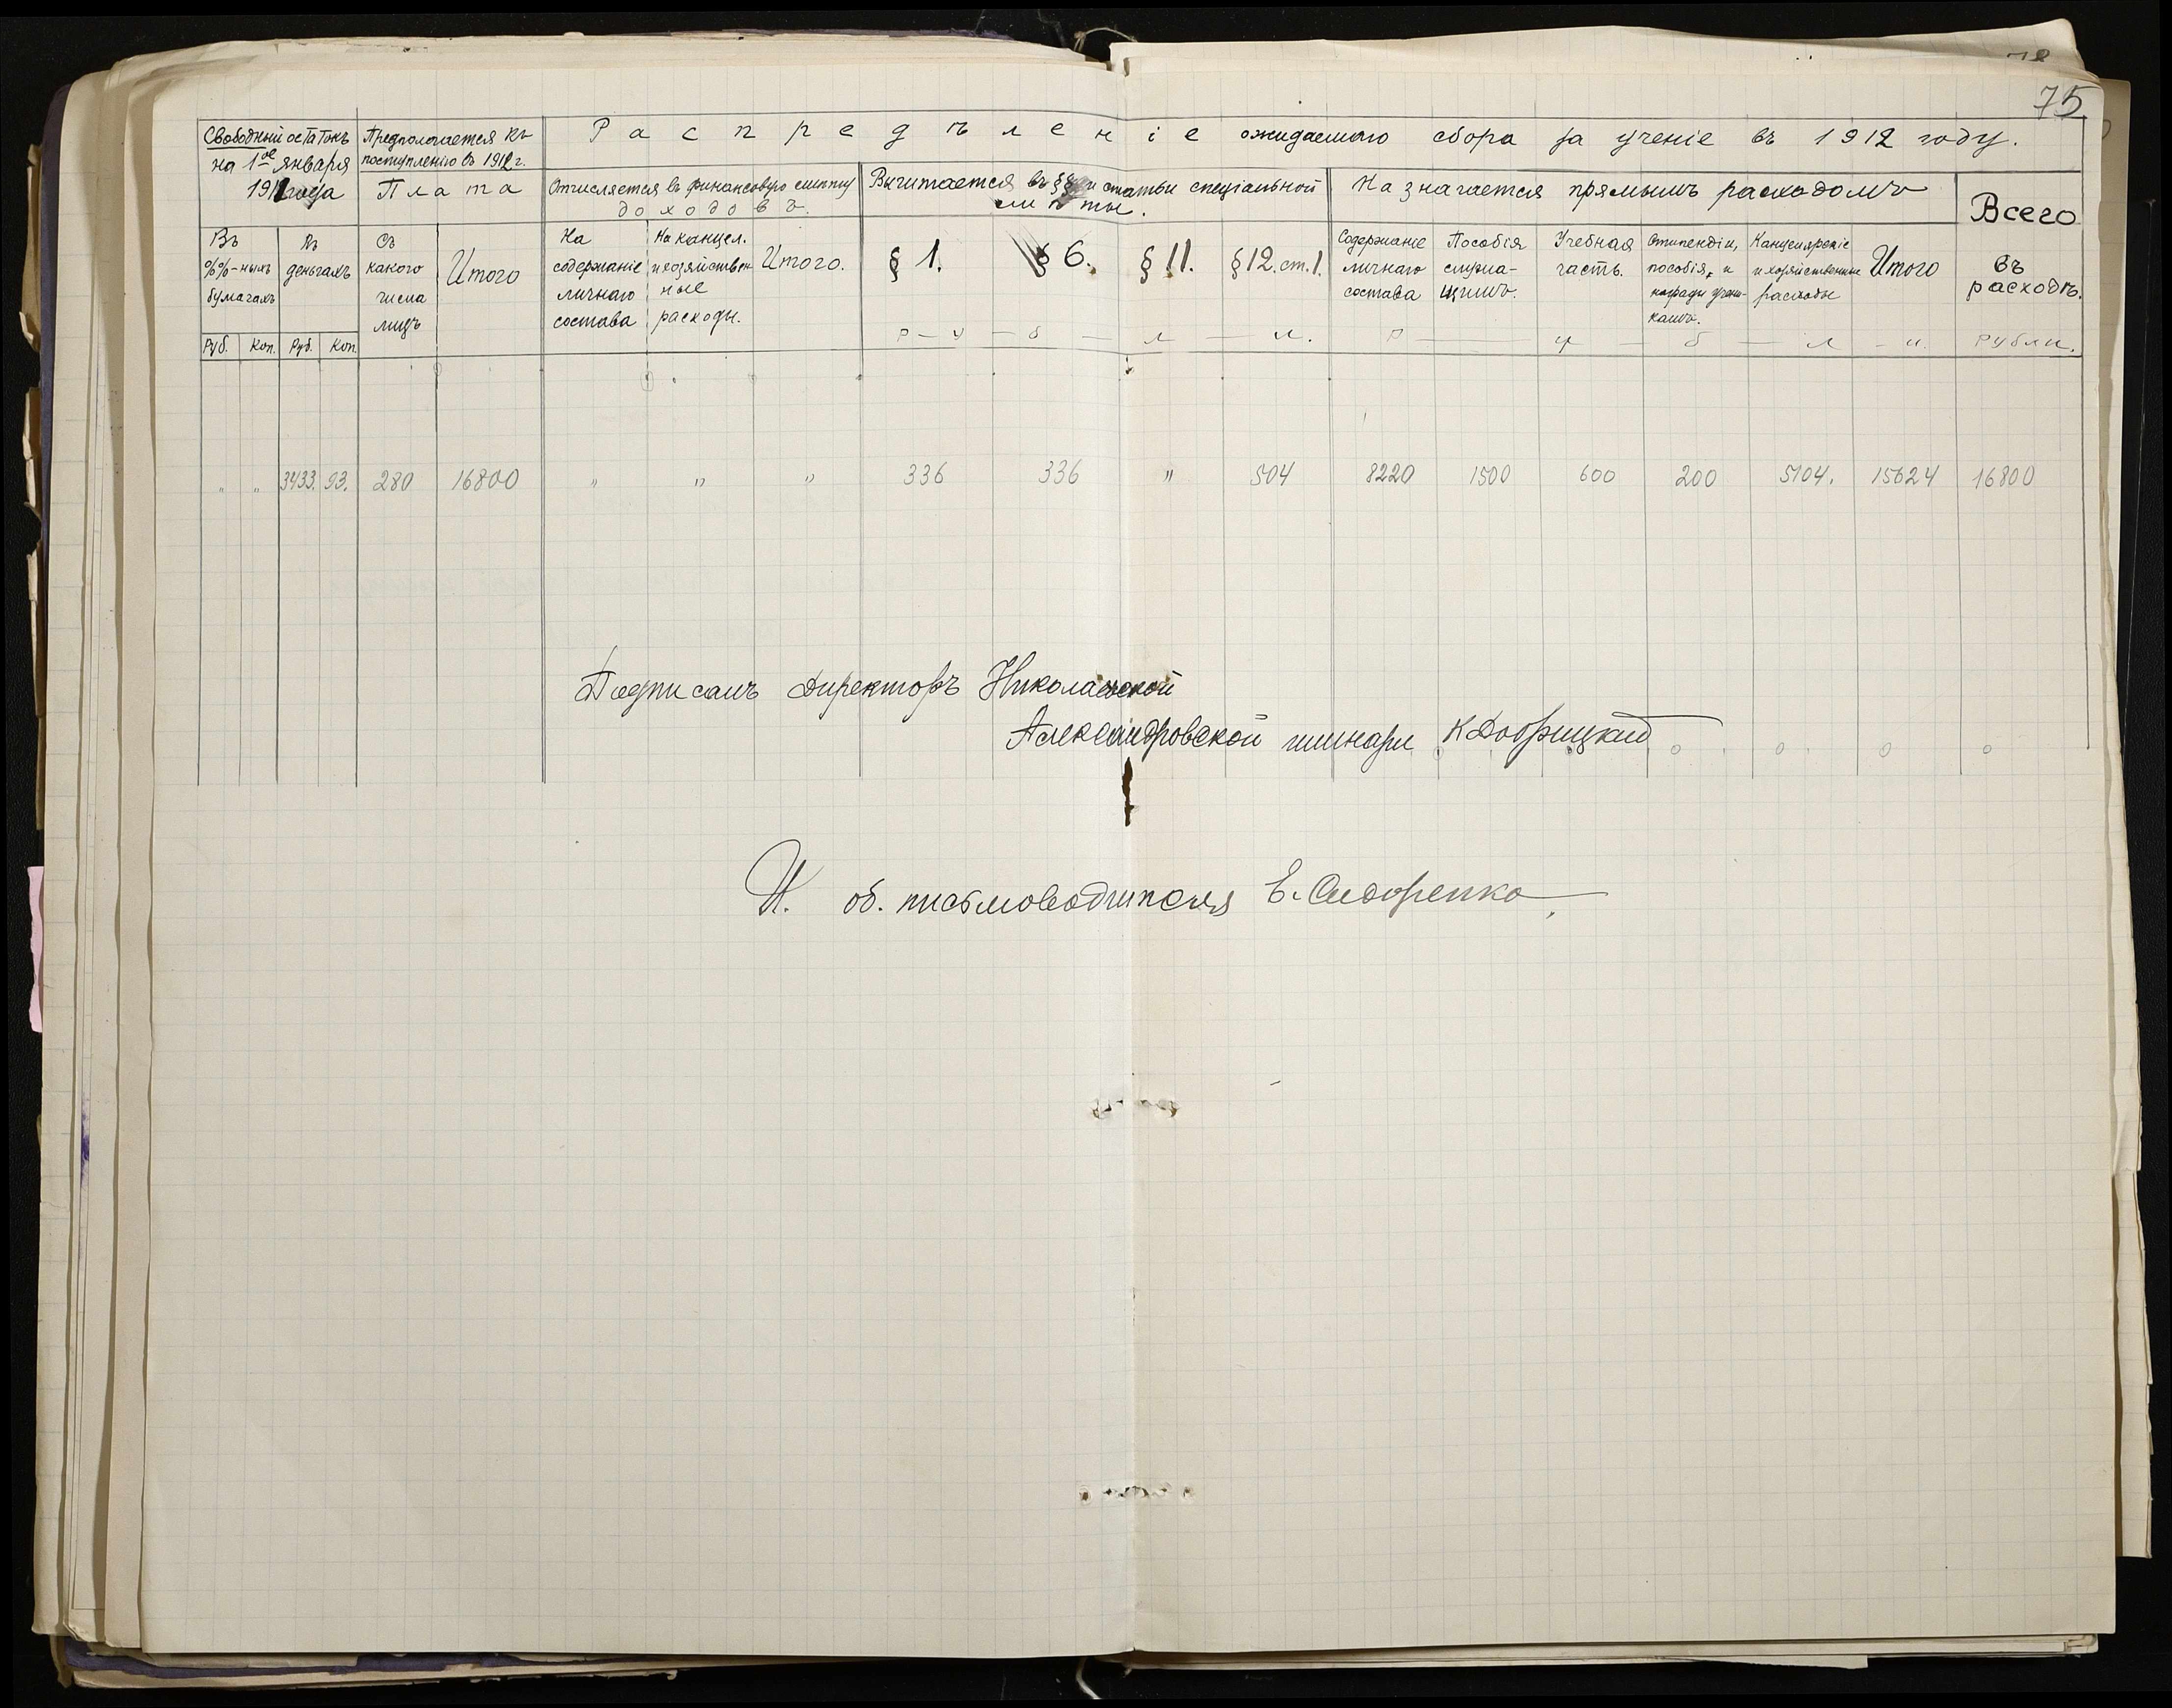 75
Свободный остатокъ на 1ое января 1911 года
Предполагается къ поступленію въ 1912 г.
Плата
Распредѣленіе ожидаемаго сбора за ученіе въ 1912 году.
Отчисляется въ финансовую смѣту доходовъ.
Вычитается въ §§ и статьи спеціальной смѣты.
Назначается прямымъ расходомъ
Всего въ расходъ.
Въ %%-ныхъ бумагахъ
Въ деньгахъ
Съ какого числа лицъ
Итого
На содержаніе личнаго состава
На канцел. и хозяйствен ные расходы.
Итого.
§ 1.
§ 6.
§ 11.
§ 12. ст. 1.
Содержаніе личнаго состава
Пособія служа-щимъ.
Учебная часть.
Стипендіи, пособія, и награды учени-камъ.
Канцелярскіе и хозяйственные расходы
Итого
Руб. Коп. Руб. Коп.
Р — у — б — л — и.
Р — у — б — л — и.
Рубли.
" " 3433. 93. 280 16800 " " " 336 336 " 504 8220 1500 600 200 5104. 15624 16800
Подписалъ Директоръ Николаевской
Александровской гимназіи
И. об. письмоводителя Е. Сидоренко